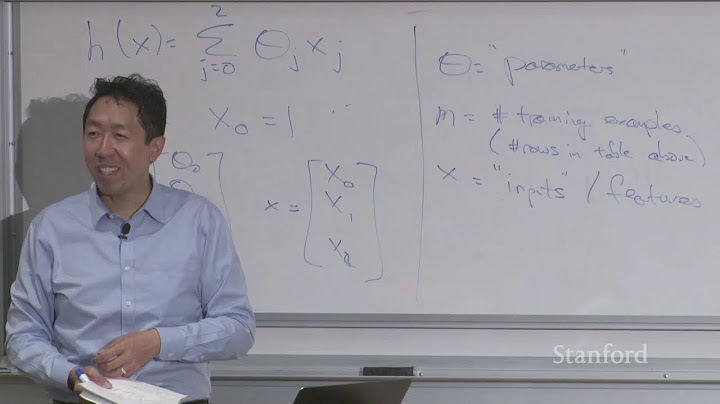 h(x) = 2 Σ j=0 θj xj
x0 = 1
θ0
x = [x0
x1
x2]
θ = "parameters"
m = # training examples
(#rows in table above)
x = "inputs" / features
Stanford